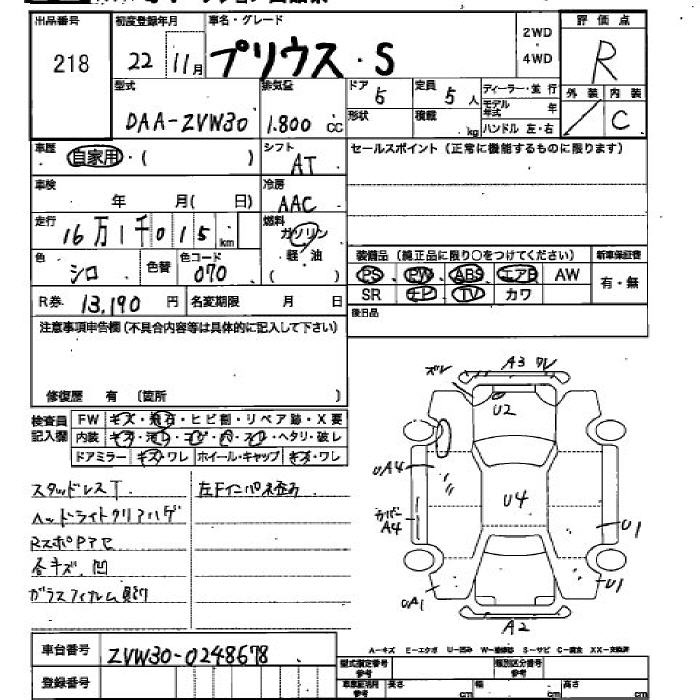 出品番号 初度登録年月 車名・グレード 2WD 評価点
218 22 11月 プリウス・S 4WD R
型式 排気量 ドア 5 定員 5人 ディーラー・並行 外装 内装
DAA-ZVW30 1.800 cc 形状 積載 kg モデル年式 年 ／ C
ハンドル 左・右
車歴 自家用・( ) シフト AT セールスポイント(正常に機能するものに限ります)
車検 年 月( 日) 冷房 AAC
走行 16万1千015km 燃料 ガソリン・軽油
色 シロ 色替 色コード 070
装備品(純正品に限り○をつけてください) 新車保証書
PS PW ABS エアB AW 有・無
SR ナビ TV カワ
R券 13,190円 名変期限 月 日 後日品
注意事項申告欄(不具合内容等は具体的に記入して下さい)
修復歴 有 (箇所 )
検査員記入欄 FW キズ・飛石・ヒビ割・リペア跡・X要
内装 キズ・汚レ・コゲ・穴・スレ・ヘタリ・破レ
ドアミラー キズ・ワレ ホイール・キャップ キズ・ワレ
スタッドレスT 左Fインパネ歪み
ヘッドライトクリアハゲ
RスポPアセ
各キズ、凹
ガラスフィルム貼り
ズレ A3 ワレ
U2
UA4
U4
カバー A4
U1
UA1 U1
A2
車台番号 ZVW30-0248678
登録番号
A-キズ E-エクボ U-凹み W-補修跡 S-サビ C-腐食 XX-交換済
型式指定番号 参考 類別区分番号 参考
車庫証明用 参考 長さ cm 幅 cm 高さ cm